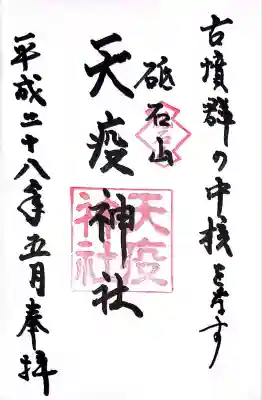 古墳群の中核となす
砥石山
天疫神社
天疫
神社
平成二十八年五月奉拝